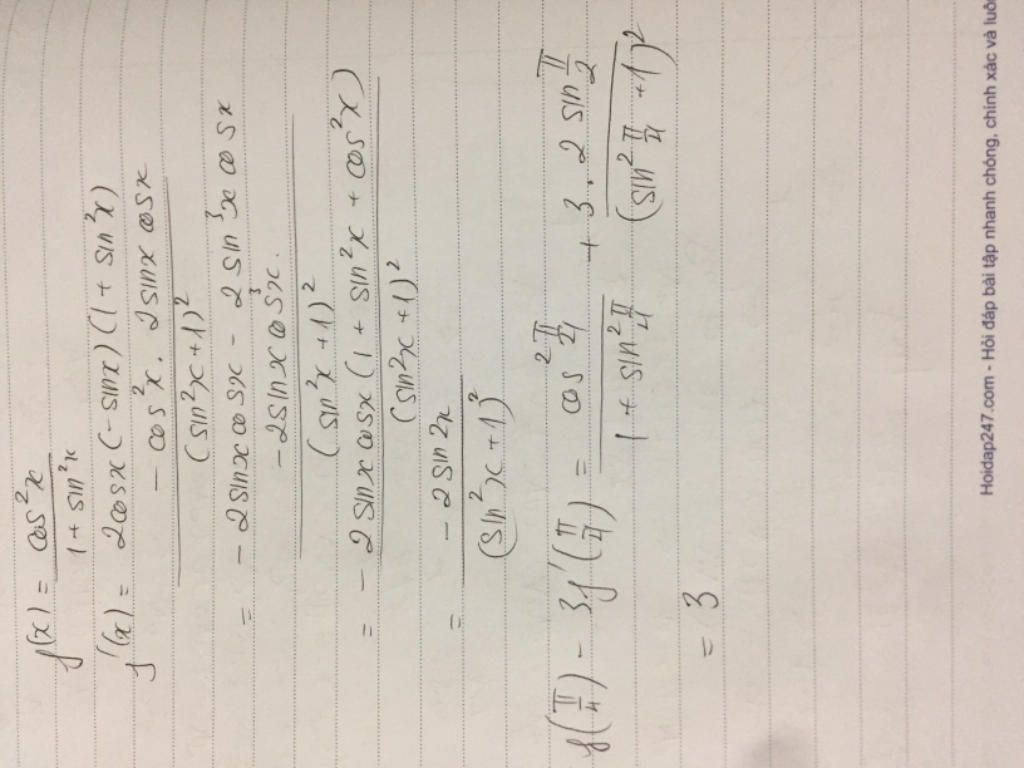 f(x) = cos²x / 1 + sin²x
f'(x) = 2cosx(-sinx)(1 + sin²x)
- cos²x. 2sinx cosx
(sin²x+1)²
= - 2sinx cosx - 2 sin³x cosx
- 2sinx cos³x.
(sin²x+1)²
= - 2 sinx cosx (1 + sin²x + cos²x)
(sin²x+1)²
= - 2 sin2x / (sin²x+1)²
f(π/4) - 3f'(π/4) = cos² π/4 / 1 + sin² π/4 + 3. 2 sin π/2 / (sin² π/4 + 1)²
= 3
Hoidap247.com - Hỏi đáp bài tập nhanh chóng, chính xác và